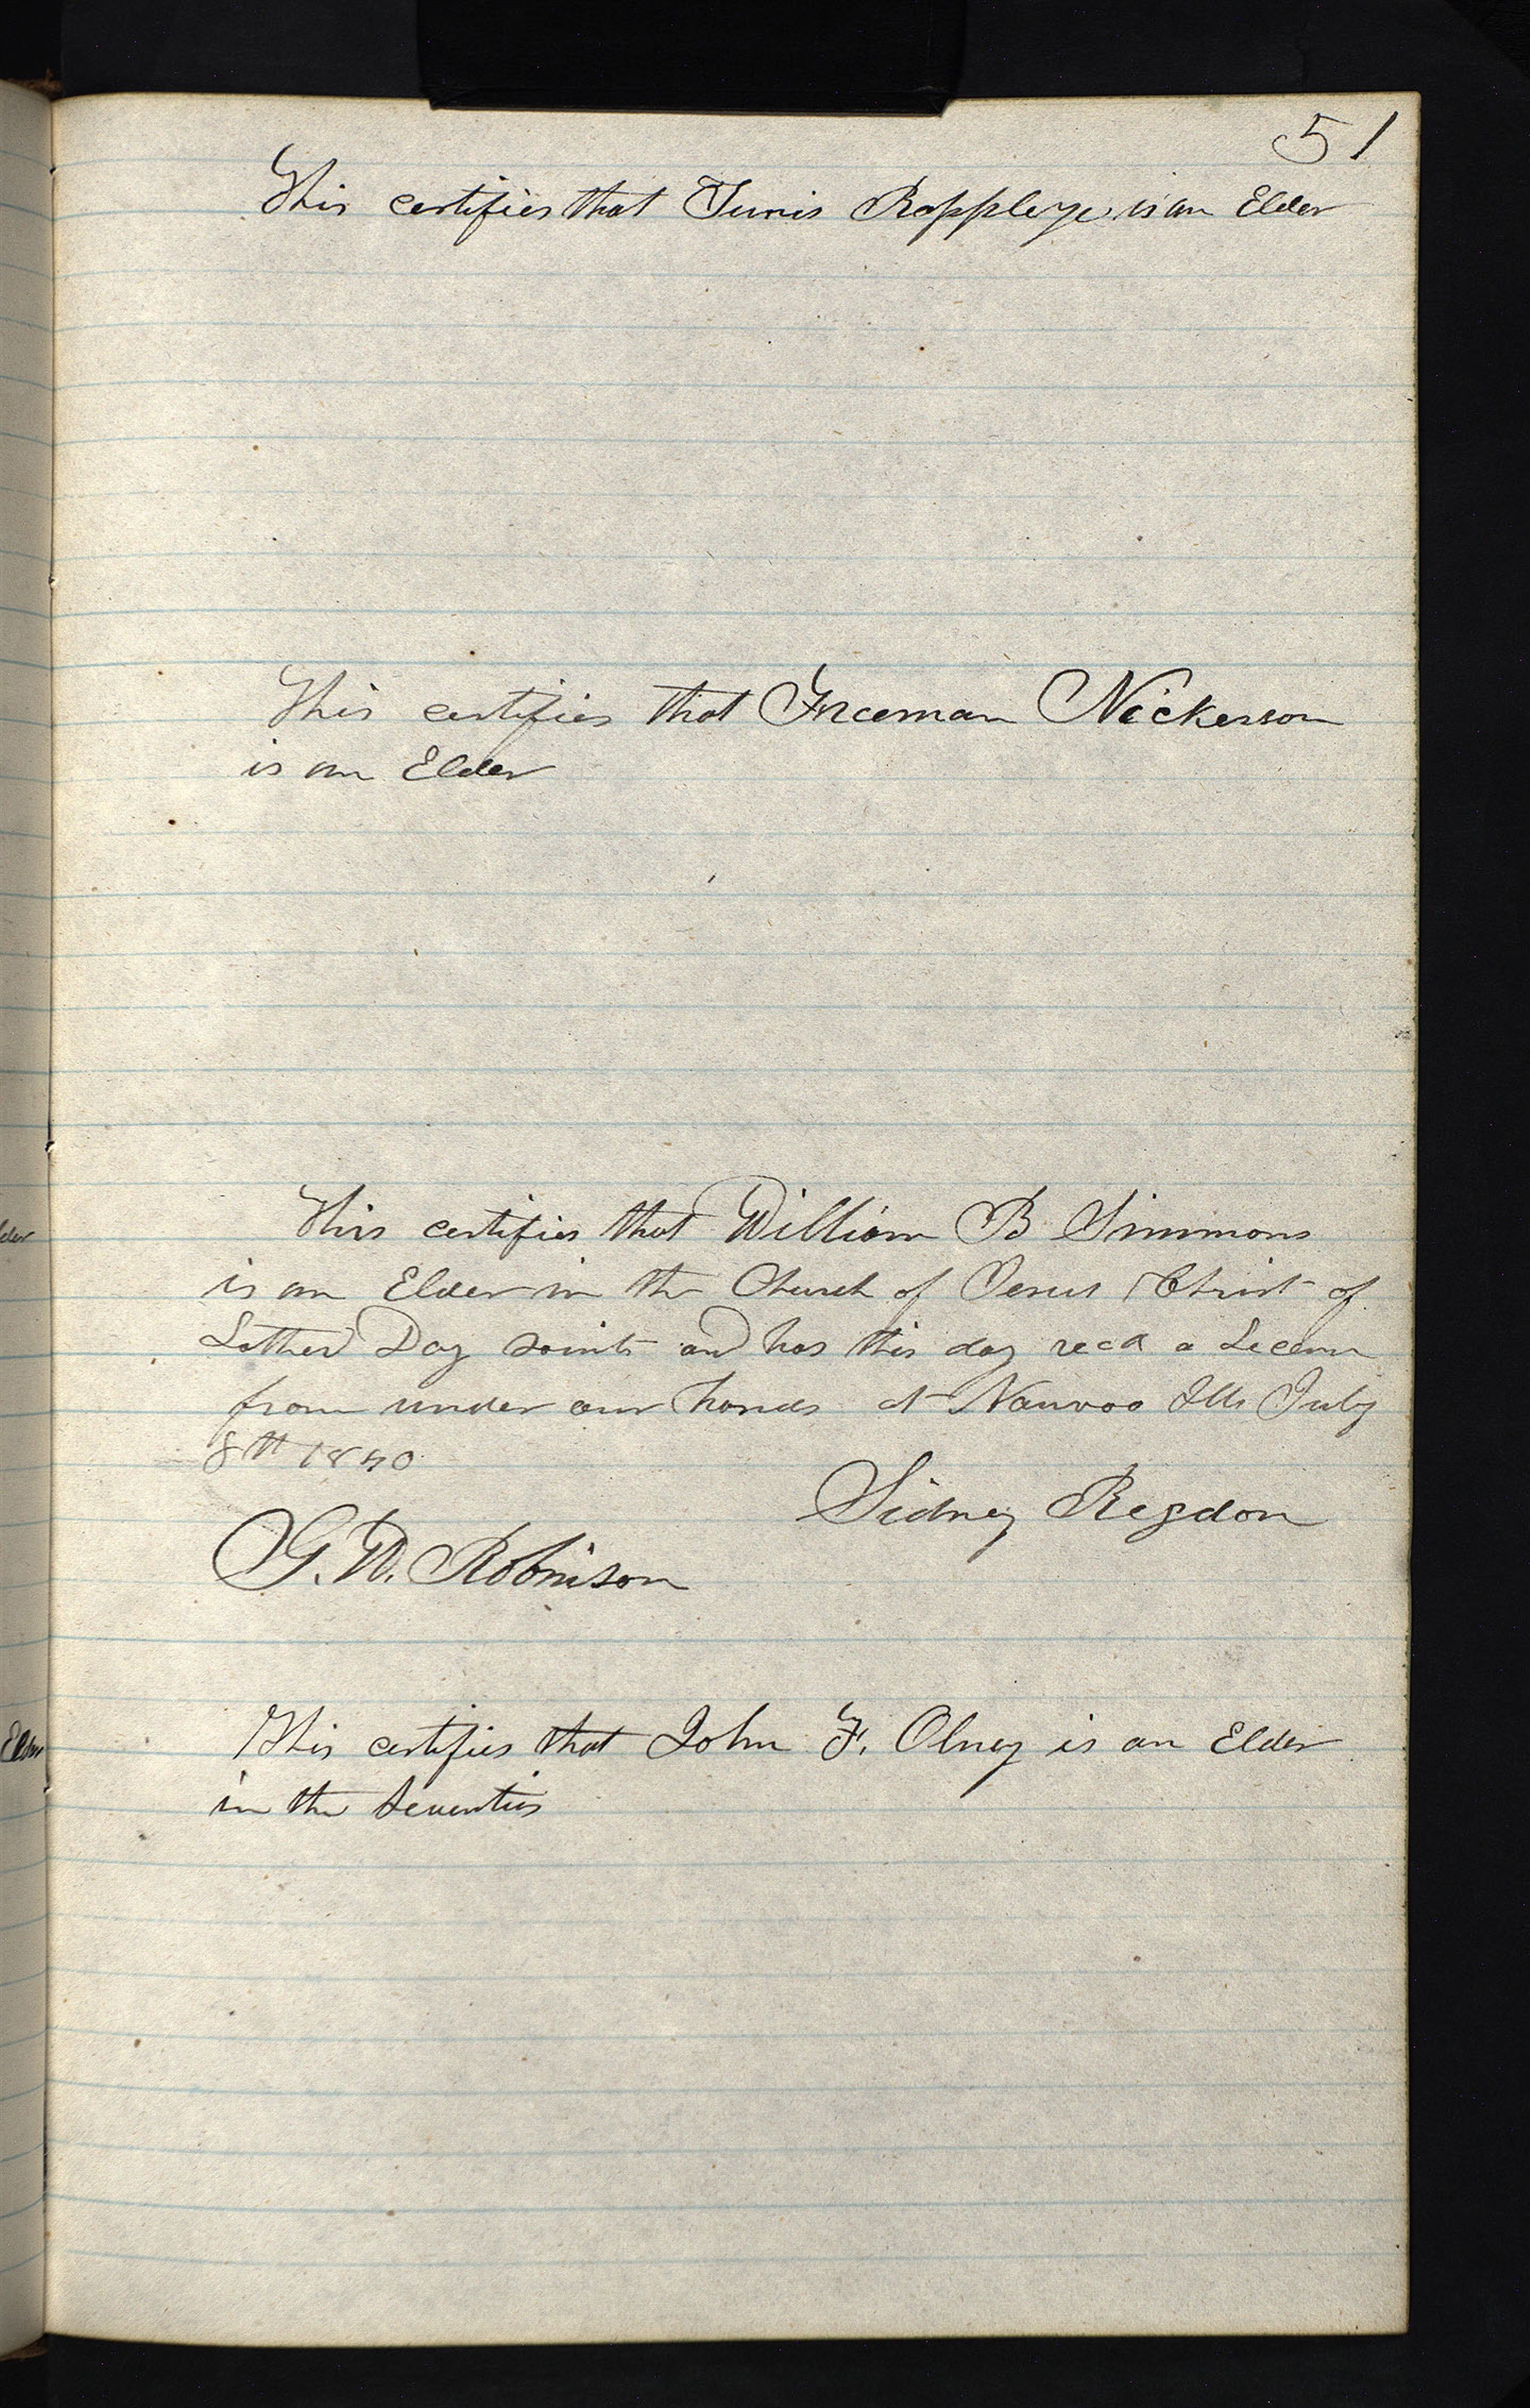 51
This certifies that Tunis Rappleye is an Elder
This certifies that Freeman Nickerson
is an Elder
This certifies that William B Simmons
is an Elder in the Church of Jesus Christ of
Latter Day saints and has this day recd a
from under our hands at Nauvoo Ills July
8th 1840
Sidney Rigdon
G. W. Robinson
This certifies that John F. Olney is an Elder
in the Seventies